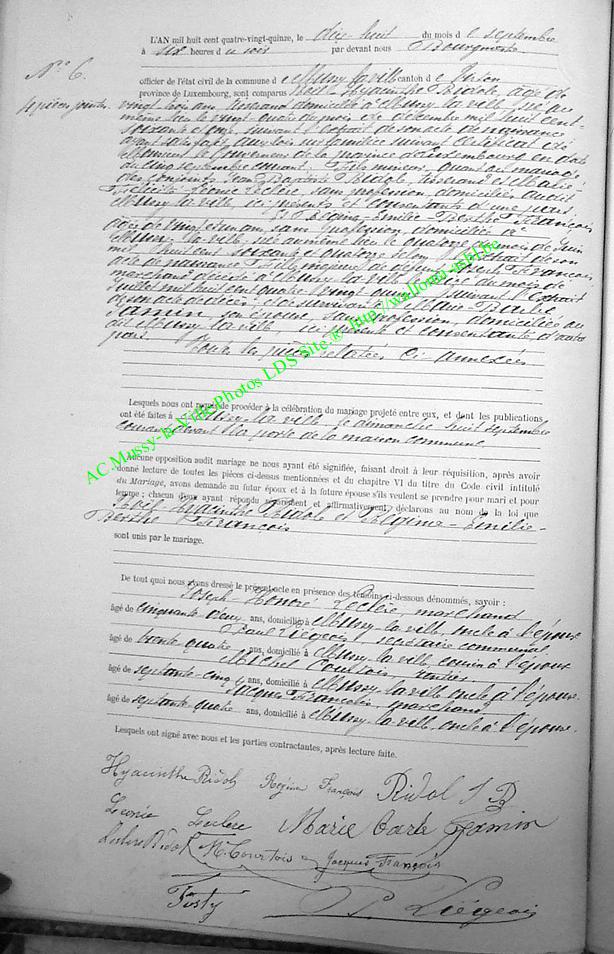 L'AN mil huit cent quatre-vingt-quinze, le dix huit du mois de septembre
à six heures du soir par devant nous Bourgmestre
N° 6.
officier de l'état civil de la commune de Mussy-la-ville canton de
province de Luxembourg, sont comparus Noël Hyacinthe Ridole, âgé de
4 pièces jointes
vingt trois ans, tisserand domicilié à Mussy-la-ville, né au
même lieu le vingt quatre du mois de décembre mil huit cent
soixante et onze, suivant l'extrait de son acte de naissance
ayant satisfait aux lois sur la milice suivant certificat de
Monsieur le Gouverneur de la province de Luxembourg en date
du cinq septembre courant. Fils mineur, quant au mariage
des conjoints Jean Baptiste Ridole, tisserand et Marie
Félicité Léonie Leclere, sans profession, domiciliés audit
Mussy-la-ville, ici présents et consentants d'une part.
Et Régina-Emilie-Berthe François
âgée de vingt et un ans, sans profession, domiciliée à
Mussy-la-ville, née au même lieu le quatorze du mois de juin
mil huit cent soixante et quatorze selon l'extrait de son
acte de naissance. Fille majeure de François
marchand décédé à Mussy-la-ville le du mois de
juillet mil huit cent quatre vingt suivant l'extrait
de son acte de décès et de survivante Marie-Barbe
Jamin, son épouse, sans profession, domiciliée au
dit Mussy-la-ville ici présente et consentante d'autre
part.
Toutes les pièces relatées ci-annexées
AC Mussy-la-Ville Photos LDS Site, © http://wallonia-asbl.be
Lesquels nous ont requis de procéder à la célébration du mariage projeté entre eux, et dont les publications
ont été faites à Mussy-la-ville le dimanche huit septembre
courant devant la porte de la maison commune
Aucune opposition audit mariage ne nous ayant été signifiée, faisant droit à leur réquisition, après avoir
donné lecture de toutes les pièces ci-dessus mentionnées et du chapitre VI du titre du Code civil intitulé
du Mariage, avons demandé au futur époux et à la future épouse s'ils veulent se prendre pour mari et pour
femme ; chacun d'eux ayant répondu séparément et affirmativement, déclarons au nom de la loi que
Noël-Hyacinthe Ridole et Régina-Emilie-
Berthe François
sont unis par le mariage.
De tout quoi nous avons dressé le présent acte en présence des témoins ci-dessous dénommés, savoir :
Joseph Honoré Leclère, marchand
âgé de cinquante deux ans, domicilié à Mussy-la-ville, oncle à l'époux
Paul Liégeois, secrétaire communal
âgé de trente quatre ans, domicilié à Mussy-la-ville, cousin à l'époux
Michel Courtois, rentier
âgé de septante-cinq ans, domicilié à Mussy-la-ville oncle à l'épouse
Jacques François, marchand
âgé de septante quatre ans, domicilié à Mussy-la-ville, oncle à l'épouse.
Lesquels ont signé avec nous et les parties contractantes, après lecture faite.
Hyacinthe Ridole Régina François Ridol J B
Léonie Leclere Marie Barbe Jamin
Leclere Ridol M. Courtois Jacques François
P Liégeois